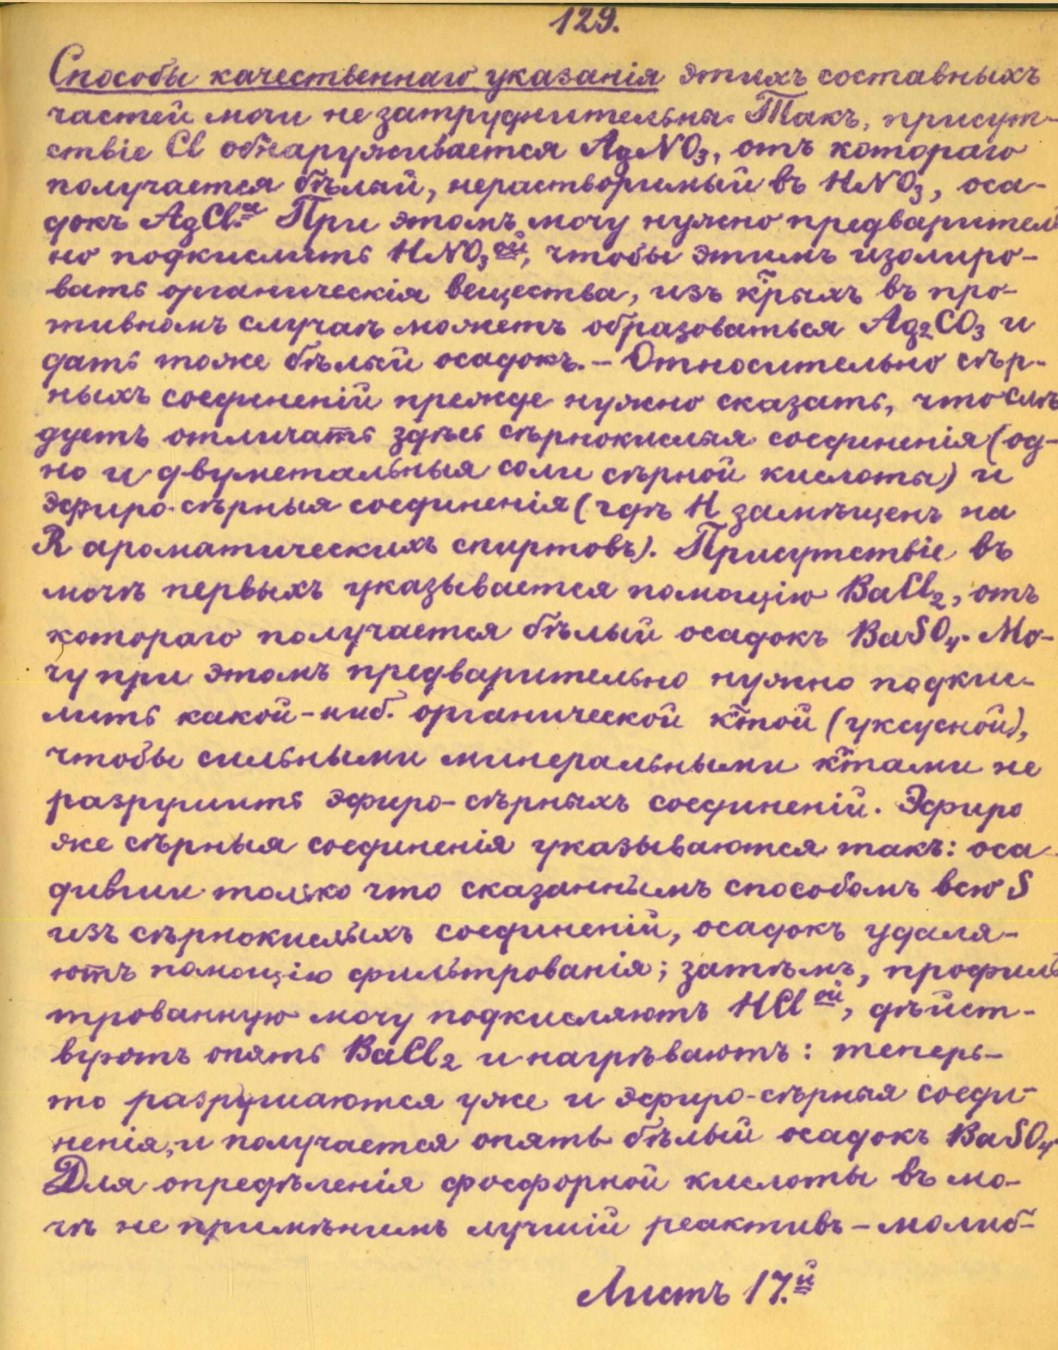 129.
Способы качественнаго указанія этихъ составныхъ
частей мочи не затруднительны. Такъ, присут-
ствіе Cl обнаруживается AgNO₃, отъ котораго
получается бѣлый, нерастворимый въ HNO₃, оса-
докъ AgCl.ᵃ При этомъ мочу нужно предварител
но подкислить HNO₃ᵒй, чтобы этимъ изолиро-
вать органическія вещества, изъ к̃рыхъ въ про-
тивномъ случаѣ можетъ образоваться Ag₂CO₃ и
дать тоже бѣлый осадокъ. – Относительно сѣр-
ныхъ соединеній прежде нужно сказать, что слѣ
дуетъ отличать здѣсь сѣрнокислыя соединенія (од-
но и двуметальныя соли сѣрной кислоты) и
эфиро-сѣрныя соединенія (гдѣ H замѣщенъ на
R ароматическихъ спиртовъ). Присутствіе въ
мочѣ первыхъ указывается помощію BaCl₂, отъ
котораго получается бѣлый осадокъ BaSO₄. Мо-
чу при этомъ предварительно нужно подкис-
лить какой-ниб. органической к̃той (уксусной),
чтобы сильными минеральными к̃тами не
разрушить эфиро-сѣрныхъ соединеній. Эфиро
же сѣрныя соединенія указываются такъ: оса-
дивши только что сказаннымъ способомъ всю S
изъ сѣрнокислыхъ соединеній, осадокъ удаля-
ютъ помощію фильтрованія; затѣмъ, профиль
трованную мочу подкисляютъ HClᵒй, дѣйст-
вуютъ опять BaCl₂ и нагрѣваютъ: теперь-
то разрушаются уже и эфиро-сѣрныя соеди-
ненія, и получается опять бѣлый осадокъ BaSO₄.
Для опредѣленія фосфорной кислоты въ мо-
чѣ не примѣнимъ лучшій реактивъ – молиб-
Листъ 17.й